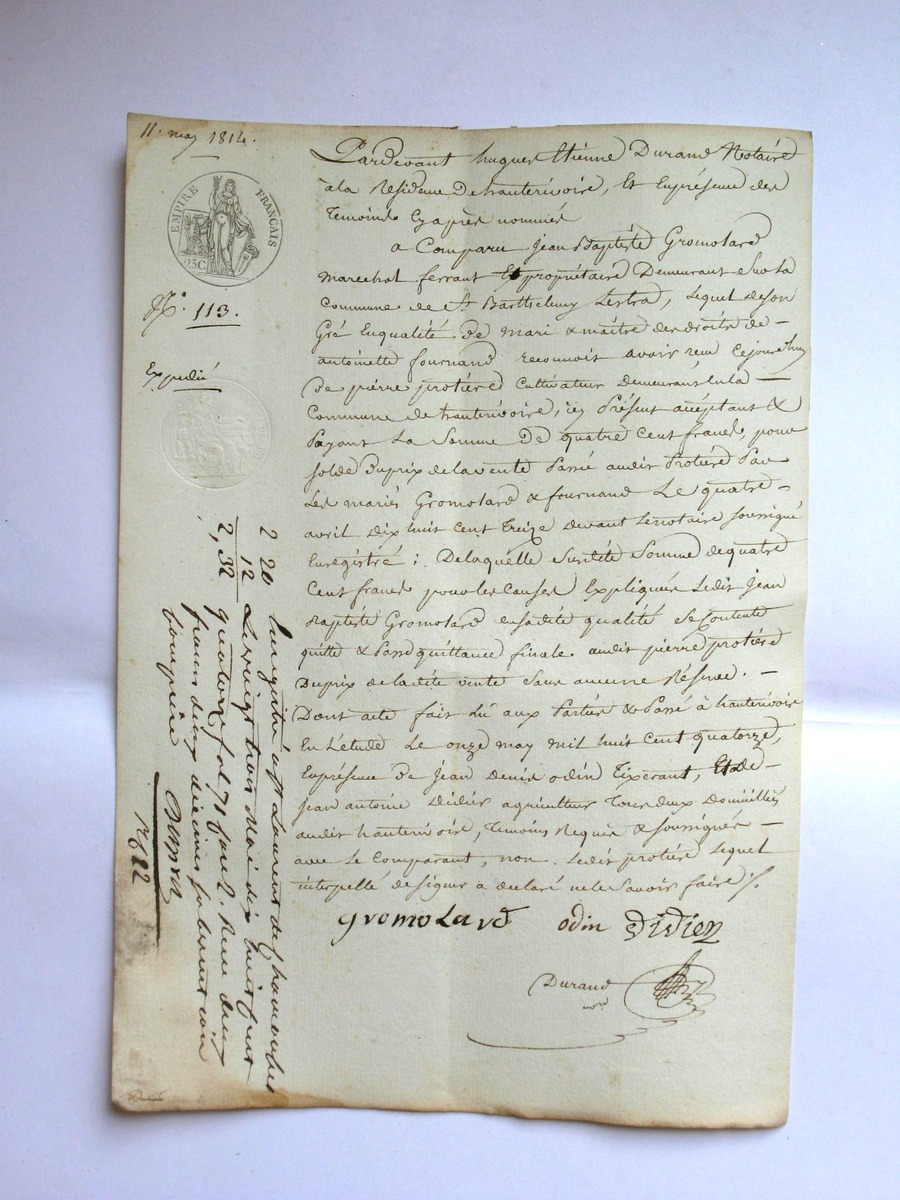 11. may 1814.
EMPIRE FRANÇAIS
25 C.
N.° 113.
Expédié
Pardevant hugues Etienne Durand Notaire
à la Residence De hauterivoire, Et Enpresence des
Temoins Cyaprès nommés
a Comparu Jean Baptiste Gromolard
marechal ferrant Et propriétaire Demeurant Sur la
Commune de St Barthelemy Lestra, lequel de son
Gré Enqualité de mari & maître des droits de –
antoinette fournand reconnoit avoir reçu Cejourdhuy
De pierre protière Cultivateur demeurant sur la –
Commune de hauterivoire, icy Présent acceptant &
Payant La Somme De quatre Cent francs, pour
solde Duprix de la vente Passé audit Protière Par
Les mariés Gromolard & fournand Le quatre –
avril dix huit cent Treize devant le notaire soussigné
Enregistré ; Delaquelle Susdite Somme de quatre
Cent francs pour les Causes Expliquées Ledit Jean
Baptiste Gromolard en sadite qualité Se Contente
quitte & Passe quittance finale audit pierre protière
Duprix de ladite vente Sans aucune Réserve. –
Dont acte fait Lû aux Parties & Passé à hauterivoire
En L'etude Le onze may mil huit Cent quatorze,
Enpresence de Jean Denis odin Tixerant, Et De –
Jean antoine Didier agriculteur Tous deux Domiciliés
audit hauterivoire, Temoins Requis & soussignés –
avec Le Comparant, non Ledit protière Lequel
interpellé de signer a declaré ne le Savoir faire ./.
Gromolard odin Didier
Durand
2 20 Enregistré à St Laurent de Chamousset
12 Le vingt trois Mai dix huit cent
2,32 quatorze fol 71 Reçu deux
francs deux dixièmes